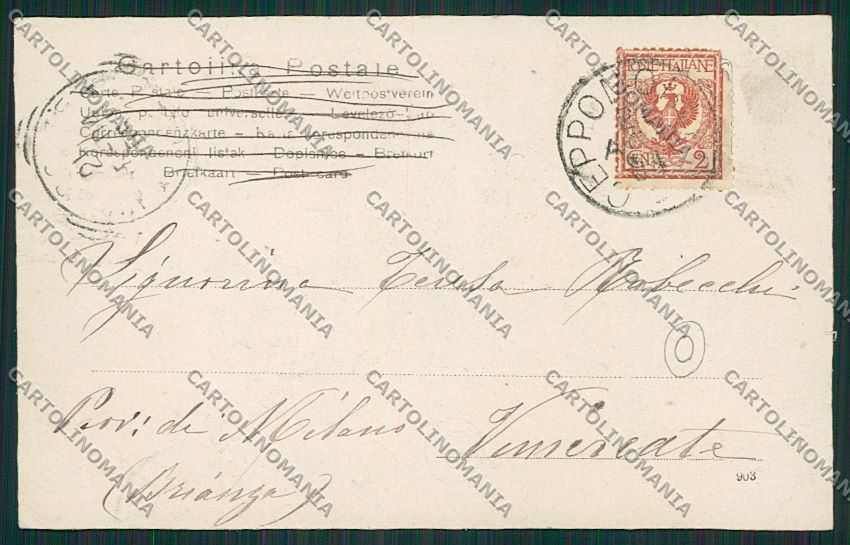 Cartolina Postale
Carte Postale — Postkarte — Weltpostverein
Union postale universelle — Levelező-Lap
Correspondenzkarte —
Korespondencni listek — Dopisnice — Brefkort
Briefkaart — Post-card
POSTE ITALIANE
CENT. 2
CEPPOMO
Signorina Teresa
O
Prov: di Milano Vimercate
(Brianza)
903
CARTOLINOMANIA